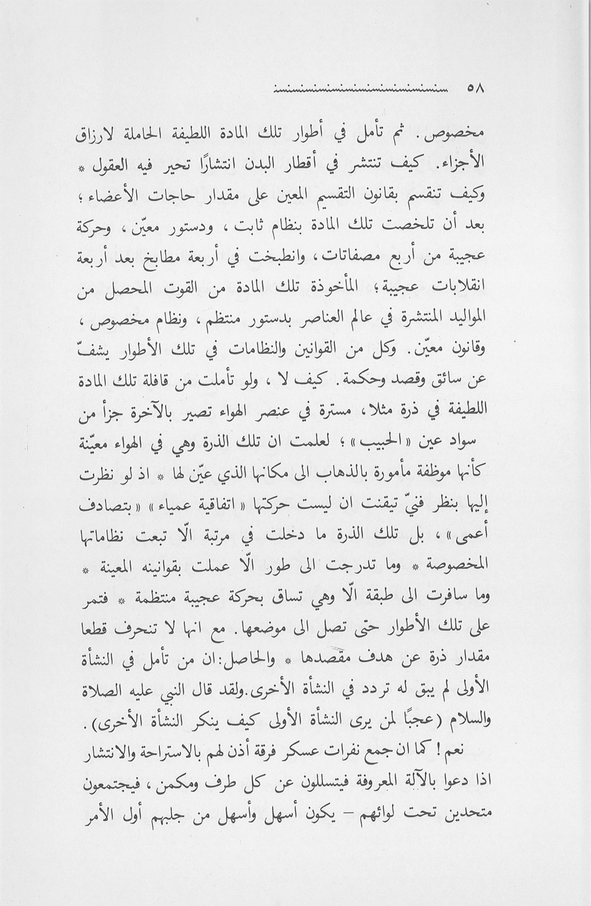 ٥٨
مخصوص. ثم تأمل في أطوار تلك المادة اللطيفة الحاملة لارزاق
الأجزاء. كيف تنتشر في أقطار البدن انتشارًا تحير فيه العقول *
وكيف تنقسم بقانون التقسيم المعين على مقدار حاجات الأعضاء؛
بعد أن تلخصت تلك المادة بنظام ثابت، ودستور معيّن، وحركة
عجيبة من أربع مصفاتات، وانطبخت في أربعة مطابخ بعد أربعة
انقلابات عجيبة؛ المأخوذة تلك المادة من القوت المحصل من
المواليد المنتشرة في عالم العناصر بدستور منتظم، ونظام مخصوص،
وقانون معيّن. وكل من القوانين والنظامات في تلك الأطوار يشفّ
عن سائق وقصد وحكمة. كيف لا، ولو تأملت من قافلة تلك المادة
اللطيفة في ذرة مثلا، مسترة في عنصر الهواء تصير بالآخرة جزأ من
سواد عين «الحبيب»؛ لعلمت ان تلك الذرة وهي في الهواء معيّنة
كأنها موظفة مأمورة بالذهاب الى مكانها الذي عيّن لها * اذ لو نظرت
إليها بنظر فنيّ تيقنت ان ليست حركتها «اتفاقية عمياء» «بتصادف
أعمى»، بل تلك الذرة ما دخلت في مرتبة الّا تبعت نظاماتها
المخصوصة * وما تدرجت الى طور الّا عملت بقوانينه المعينة *
وما سافرت الى طبقة الّا وهي تساق بحركة عجيبة منتظمة * فتمر
على تلك الأطوار حتى تصل الى موضعها. مع انها لا تنحرف قطعا
مقدار ذرة عن هدف مقصدها * والحاصل: ان من تأمل في النشأة
الأولى لم يبق له تردد في النشأة الأخرى. ولقد قال النبي عليه الصلاة
والسلام (عجبًا لمن يرى النشأة الأولى كيف ينكر النشأة الأخرى).
نعم! كما ان جمع نفرات عسكر فرقة أذن لهم بالاستراحة والانتشار
اذا دعوا بالآلة المعروفة فيتسللون عن كل طرف ومكمن، فيجتمعون
متحدين تحت لوائهم – يكون أسهل وأسهل من جلبهم أول الأمر